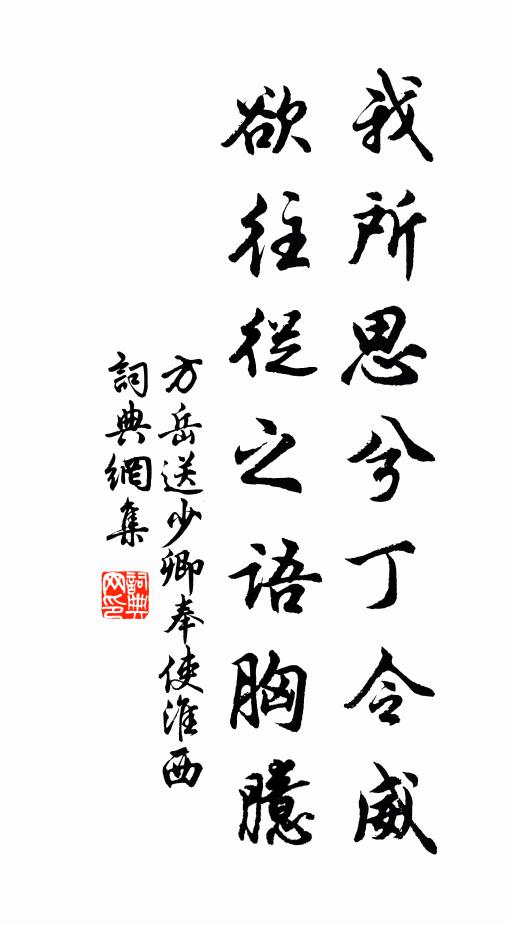 我所思兮丁令威
欲往從之語胸臆
方岳送少卿奉使淮西
詞典網集
詞典網印